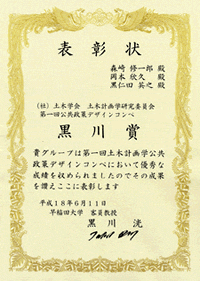 表彰状
森崎 修一郎 殿
岡本 欣久 殿
黒仁田 英之 殿
(社)土木学会 土木計画学研究委員会
第一回公共政策デザインコンペ
黒川賞
貴グループは第一回土木計画学公共
政策デザインコンペにおいて優秀な
成績を収められましたのでその成果
を讃えここに表彰します
平成18年6月11日
早稲田大学 客員教授
黒川 洸